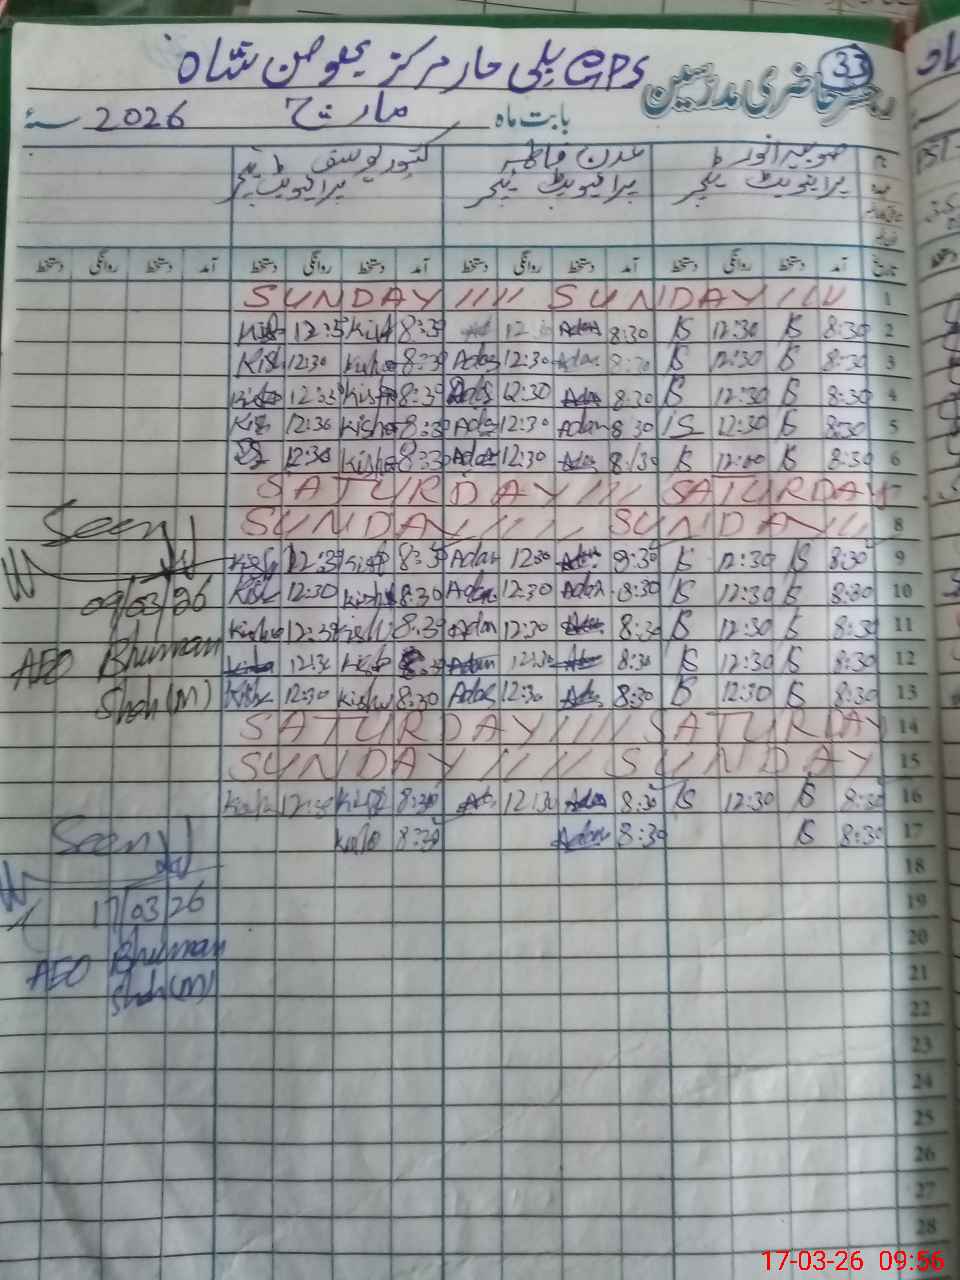 33
رجسٹر حاضری مدرسین
GPS پلی حار مرکز بھومن شاہ
بابت ماہ مارچ 2026 سنۂ
عدن فاطمہ کشور یوسف
پرائیویٹ ٹیچر پرائیویٹ ٹیچر پرائیویٹ ٹیچر
تاریخ آمد دستخط روانگی دستخط آمد دستخط روانگی دستخط آمد دستخط روانگی دستخط آمد دستخط روانگی دستخط
SUNDAY //// SUNDAY //// 1
12:30 Adan 8:30 IS 12:30 IS 8:30 2
Kish 12:30 Kisho 8:30 Adan 12:30 Adan 8:30 IS 12:30 IS 8:30 3
Kisho 8:30 Adan 12:30 Adan 8:30 IS 12:30 IS 8:30 4
Kish 12:30 Kisho 8:30 Adan 12:30 Adan 8:30 IS 12:30 IS 8:30 5
12:30 Kisho 8:30 Adan 12:30 Adan 8:30 IS IS 8:30 6
SATURDAY /// SATURDAY 7
SUNDAY //// SUNDAY // 8
Seen
Kish 12:30 Kish 8:30 Adan 12:30 Adan 8:30 IS 12:30 IS 8:30 9
09/03/26
Kish 12:30 Kish 8:30 Adan 12:30 Adan 8:30 IS 12:30 IS 8:30 10
Kish 12:30 Kish 8:30 Adan 12:30 Adan 8:30 IS 12:30 IS 8:30 11
AEO Bhuman
Kish 12:30 Kish 8:30 Adan 12:30 Adan 8:30 IS 12:30 IS 8:30 12
Shah (M)
Kish 12:30 Kish 8:30 Adan 12:30 Adan 8:30 IS 12:30 IS 8:30 13
SATURDAY //// SATURDAY 14
SUNDAY //// SUNDAY 15
Kish 12:30 Kish 8:30 Ada 12:30 Adan 8:30 IS 12:30 IS 8:30 16
Seen
8:30 Adan 8:30 IS 8:30 17
18
17/03/26
19
AEO Bhuman
20
Shah (M)
21
22
23
24
25
26
27
28
17-03-26 09:56